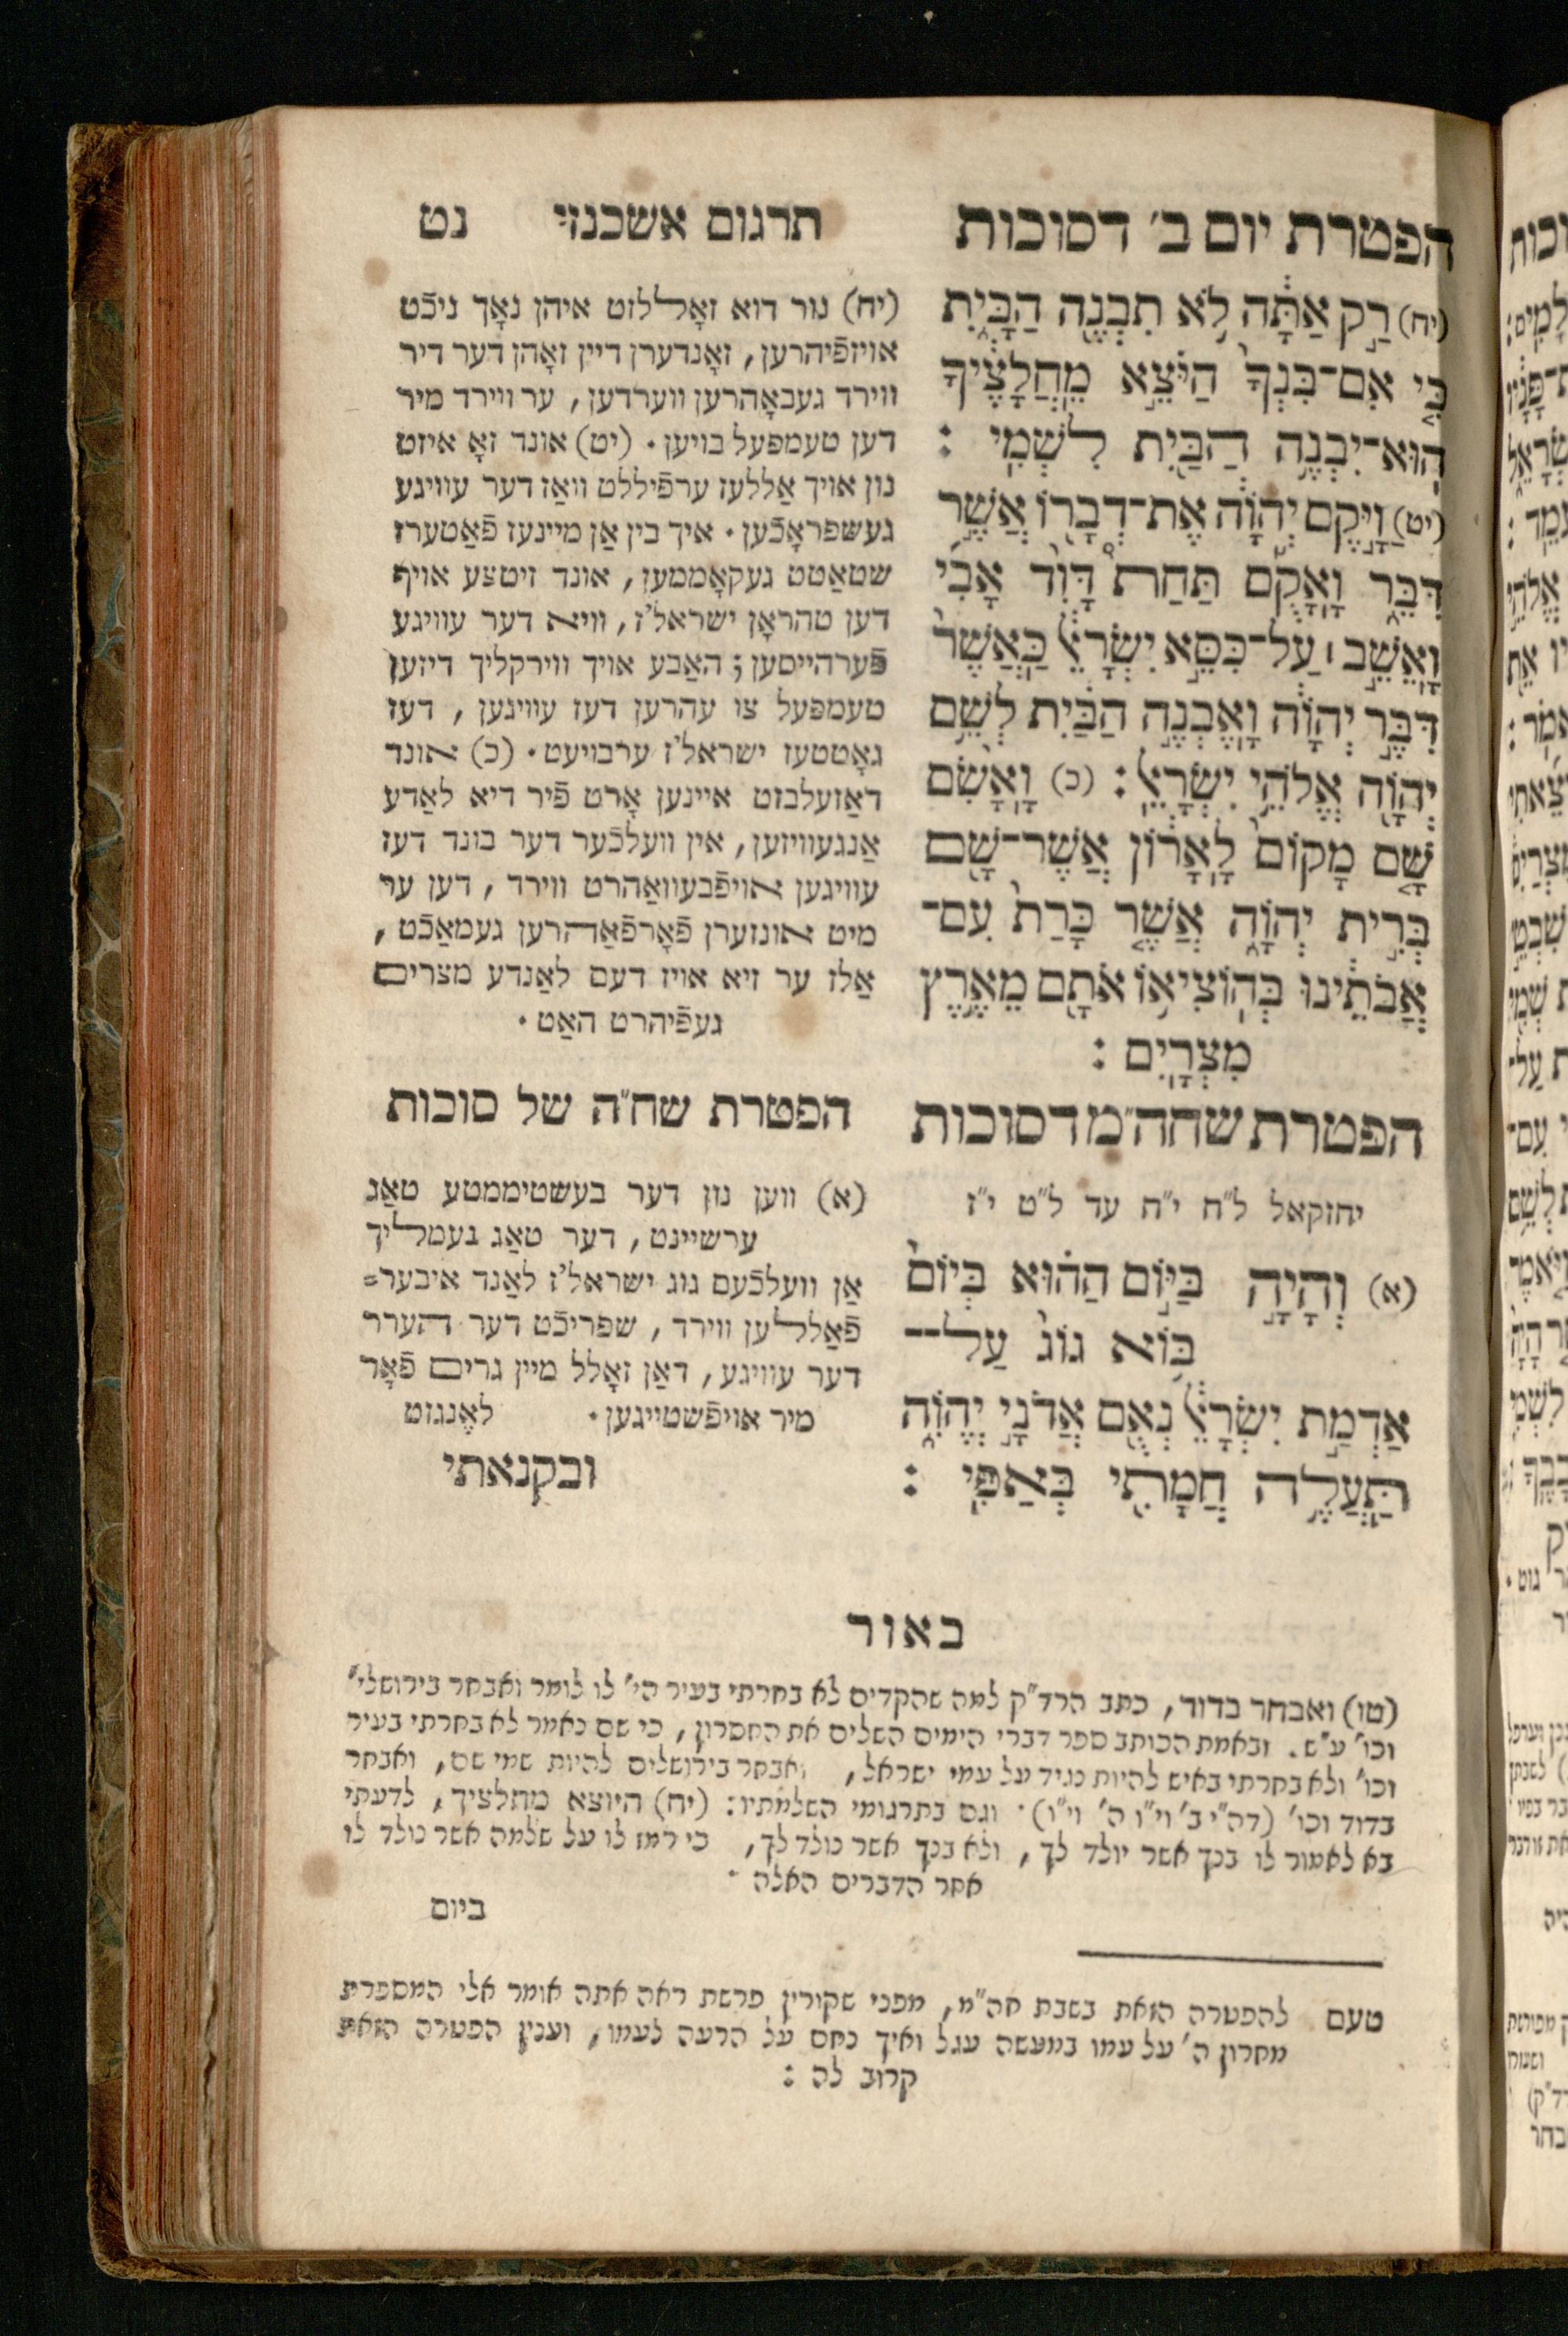 הפטרת יום ב׳ דסוכות
(יח) רַ֣ק אַתָּ֔ה לֹ֥א תִבְנֶ֖ה הַבָּ֑יִת
כִּ֤י אִם־בִּנְךָ֙ הַיֹּצֵ֣א מֵֽחֲלָצֶ֔יךָ
הֽוּא־יִבְנֶ֥ה הַבַּ֖יִת לִשְׁמִֽי :
(יט) וַיָּ֣קֶם יְהוָֹ֔ה אֶת־דְּבָר֖וֹ אֲשֶׁ֣ר
דִּבֵּ֑ר וָֽאָקֻ֡ם תַּ֩חַת֩ דָּוִ֨ד אָבִ֜י
וָֽאֵשֵׁ֣ב ׀ עַל־כִּסֵּ֣א יִשְׂרָאֵ֗ל כַּֽאֲשֶׁר֙
דִּבֶּ֣ר יְהוָֹ֔ה וָֽאֶבְנֶ֣ה הַבַּ֔יִת לְשֵׁ֥ם
יְהוָֹ֖ה אֱלֹהֵ֥י יִשְׂרָאֵֽל : (כ) וָֽאָשִׂ֨ם
שָׁ֤ם מָקוֹם֙ לָֽאָר֔וֹן אֲשֶׁר־שָׁ֖ם
בְּרִ֣ית יְהוָֹ֑ה אֲשֶׁ֤ר כָּרַת֙ עִם־
אֲבֹתֵ֔ינוּ בְּהֽוֹצִיא֥וֹ אֹתָ֖ם מֵאֶ֥רֶץ
מִצְרָֽיִם :
הפטרת שחה״מ דסוכות
יחזקאל ל״ח י״ח עד ל״ט י״ז
(א) וְהָיָ֣ה בַּיּ֣וֹם הַה֗וּא בְּי֨וֹם
בּ֥וֹא גוֹג֙ עַל־
אַדְמַ֣ת יִשְׂרָאֵ֔ל נְאֻ֖ם אֲדֹנָ֣י יֱהוִֹ֑ה
תַּֽעֲלֶ֥ה חֲמָתִ֖י בְּאַפִּֽי :
תרגום אשכנזי נט
(יח) נור דוא זאָללזט איהן נאָך ניכֿט
אויזפֿיהרען, זאָנדערן דיין זאָהן דער דיר
ווירד געבאָהרען ווערדען, ער ווירד מיר
דען טעמפעל בויען. (יט) אונד זאָ איזט
נון אויך אַללעז ערפֿיללט וואַז דער עוויגע
געשפראָכֿען. איך בין אַן מיינעז פֿאַטערז
שטאַטט געקאָממען, אונד זיטצע אויף
דען טהראָן ישראל׳ז, וויא דער עוויגע
פֿערהייסען; האַבע אויך ווירקליך דיזען
טעמפעל צו עהרען דעז עוויגען, דעז
גאָטטעז ישראל׳ז ערבויעט. (כ) אונד
דאַזעלבזט איינען אָרט פֿיר דיא לאַדע
אַנגעוויזען, אין וועלכֿער דער בונד דעז
עוויגען אויפֿבעוואַהרט ווירד, דען ער
מיט אונזערן פֿאָרפֿאַהרען געמאַכֿט,
אַלז ער זיא אויז דעם לאַנדע מצרים
געפֿיהרט האַט.
הפטרת שח״ה של סוכות
(א) ווען נון דער בעשטיממטע טאַג
ערשיינט, דער טאַג נעמליך
אַן וועלכֿעם גוג ישראל׳ז לאַנד איבער=
פֿאַללען ווירד, שפריכֿט דער הערר
דער עוויגע, דאַן זאָלל מיין גרים פֿאָר
מיר אויפֿשטייגען. לאֶנגזט
ובקנאתי
באור
(טו) ואבחר בדוד, כתב הרד״ק למה שהקדים לא בחרתי בעיר הי׳ לו לומר ואבחר בירושלי׳
וכו׳ ע״ש. ובאמת הכותב ספר דברי הימים השלים את החסרון, כי שם נאמר לא בחרתי בעיר
וכו׳ ולא בחרתי באיש להיות נגיד על עמי ישראל, ואבחר בירושלים להיות שמי שם, ואבחר
בדוד וכו׳ (דה״י ב׳ וי״ו ה׳ וי״ו). וגם בתרגומי השלמתיו: (יח) היוצא מחלציך, לדעתי
בא לאמור לו בנך אשר יולד לך, ולא בנך אשר נולד לך, כי רמז לו על שלמה אשר נולד לו
אחר הדברים האלה.
ביום
טעם להפטרה הזאת בשבת חה״מ, מפני שקורין פרשת ראה אתה אומר אלי המספרת
מחרון ה׳ על עמו במעשה עגל ואיך נחם על הרעה לעמו, וענין הפטרה הזאת
קרוב לה :